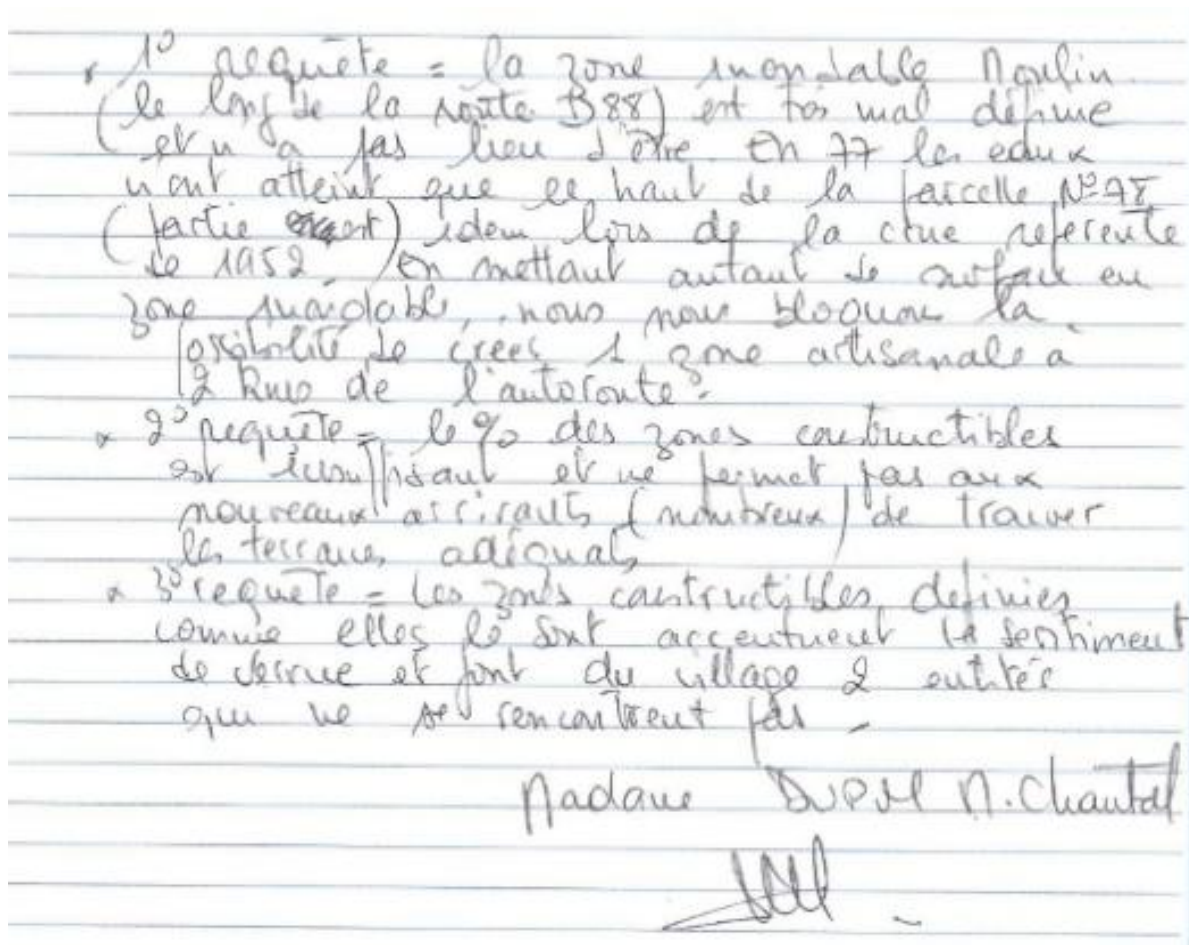 * 1° requête = la zone inondable Moulin
(le long de la route D88) est très mal définie
et n'a pas lieu d'être. En 77 les eaux
n'ont atteint que le haut de la parcelle N°78
(partie) idem lors de la crue référente
de 1952. En mettant autant de surface en
zone inondable, nous nous bloquons la
possibilité de créer 1 zone artisanale à
2 kms de l'autoroute.
* 2° requête = le % des zones constructibles
est insuffisant et ne permet pas aux
nouveaux arrivants (nombreux) de trouver
les terrains adéquats
* 3° requête = Les zones constructibles, définies
comme elles le sont accentuent le sentiment
de et font du village 2 entités
qui ne se rencontrent pas -
Madame M. Chantal